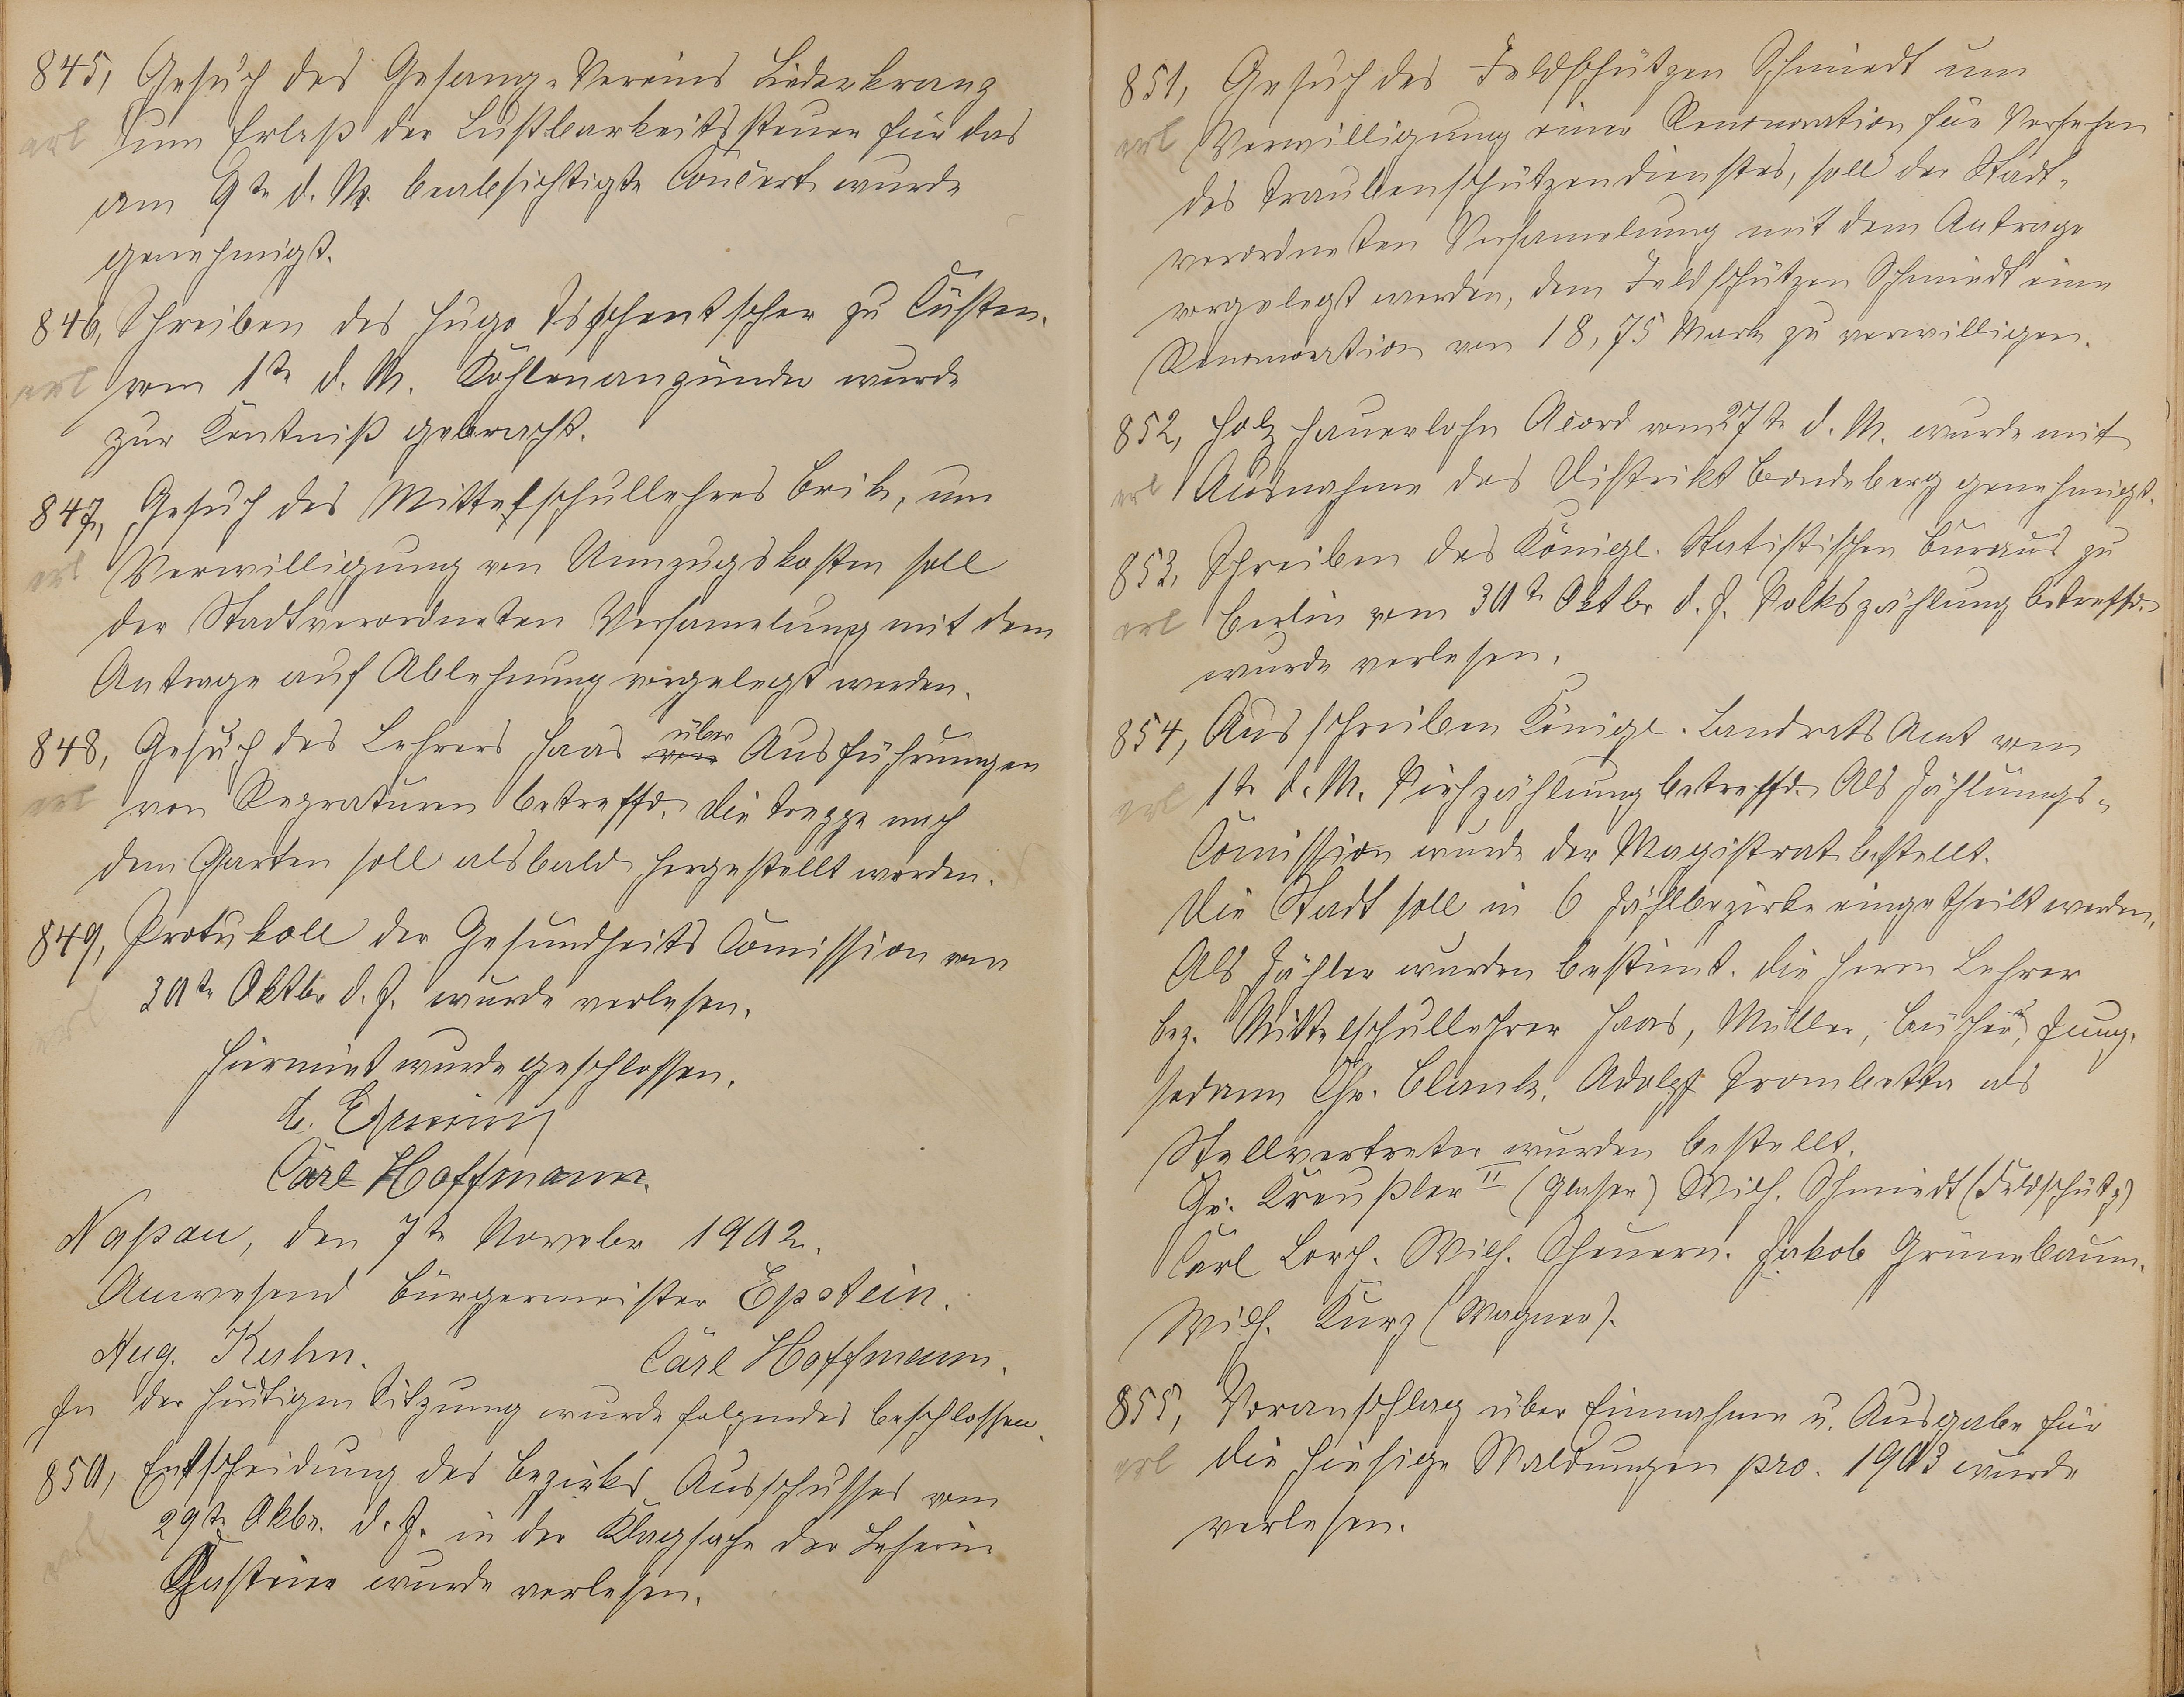 845, Gesuch des Gesang-Vereins Liederkranz
erl um Erlaß der Lustbarkeitssteuer für das
am 9te d. M. beabsichtigte Concert wurde
genehmigt.
846, Schreiben des Hugo Tsschentscher zu Cüstrin.
erl vom 1te d. M. Kohlenanzünder wurde
zur Kentniß gebracht.
847, Gesuch des Mittelschullehres Brik, um
erl Verwilligung von Umzugskosten soll
der Stadtverordneten Versamelung mit dem
Antrage auf Ablehnung vorgelegt werden.
848, Gesuch des Lehrers Haas über Ausführungen
erl von Repraturen betreffd. Die Treppe nach
dem Garten soll alsbald hergestellt werden.
849, Protukoll der Gesundheits Comission vom
30te Oktbr d. J. wurde verlesen.
Hiermit wurde geschlossen.
Carl Hoffmann.
Naßau, den 7te Novebr 1902.
Anwesend Bürgermeister Epstein.
Aug. Kuhn. Carl Hoffmann.
In der heutigen Sitzung wurde folgendes beschlossen.
850, Entscheidung des Bezirks Ausschusses vom
29te Okbr. d. J. in der Klagsache der Lehrerin
wurde verlesen.
851, Gesuch des Feldschützen Schmidt um
erl Verwilligung einer Renomeration für Versehen
des Traubenschützendienstes, soll der Stadt-
verordneten Versamelung mit dem Antrage
vorgelegt werden, dem Feldschützen Schmidt eine
Renomeration von 18,75 Mark zu verwilligen.
852, Holzhauerlohn Acord vom 27te d. M. wurde mit
erl Ausnahme des Distrikt genehmigt.
853, Schreiben des Königl. Statistischen Buraus zu
erl Berlin vom 30te Oktbr d. J. Volkszählung betreffd.
wurde verlesen.
854, Ausschreiben Königl. Landrats Amt vom
erl 1te d. M. Viehzählung betreffd. Als Zählungs-
Comission wurde der Magistrat bestellt.
Die Stadt soll in 6 Zählbezirke eingetheilt werden.
Als Zähler wurden bestimt. Die Herrn Lehrer
bez. Mittelschullehrer Haas, Müller, Bücher, u. Jung,
sodann Chr. Blank. Adolpf Trombetta als
Stellvertreter wurden bestellt.
Chr. Kreußler II (Glaser) Wilh. Schmidt (Feldschütz)
Carl Lorch. Wilh. Scheuern. Jakob Grünebaum.
Wilh. Kurz (Wagner).
855, Voranschlag über Einnahme u. Ausgabe für
erl die hiesige Waldungen pro. 1903 wurde
verlesen.